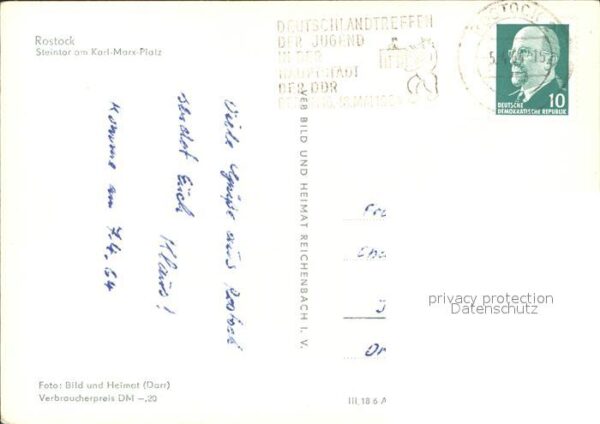 Rostock
Steintor am Karl-Marx-Platz
DEUTSCHLANDTREFFEN
DER JUGEND
IN DER
HAUPTSTADT
DER DDR
ROSTOCK
10
DEUTSCHE
DEMOKRATISCHE REPUBLIK
Viele Grüße aus Rostock
sendet Euch
Klaus!
Komme am 7.4.64
VEB BILD UND HEIMAT REICHENBACH I. V.
privacy protection
Datenschutz
Foto: Bild und Heimat (Darr)
Verbraucherpreis DM –,20
III 18 6 A